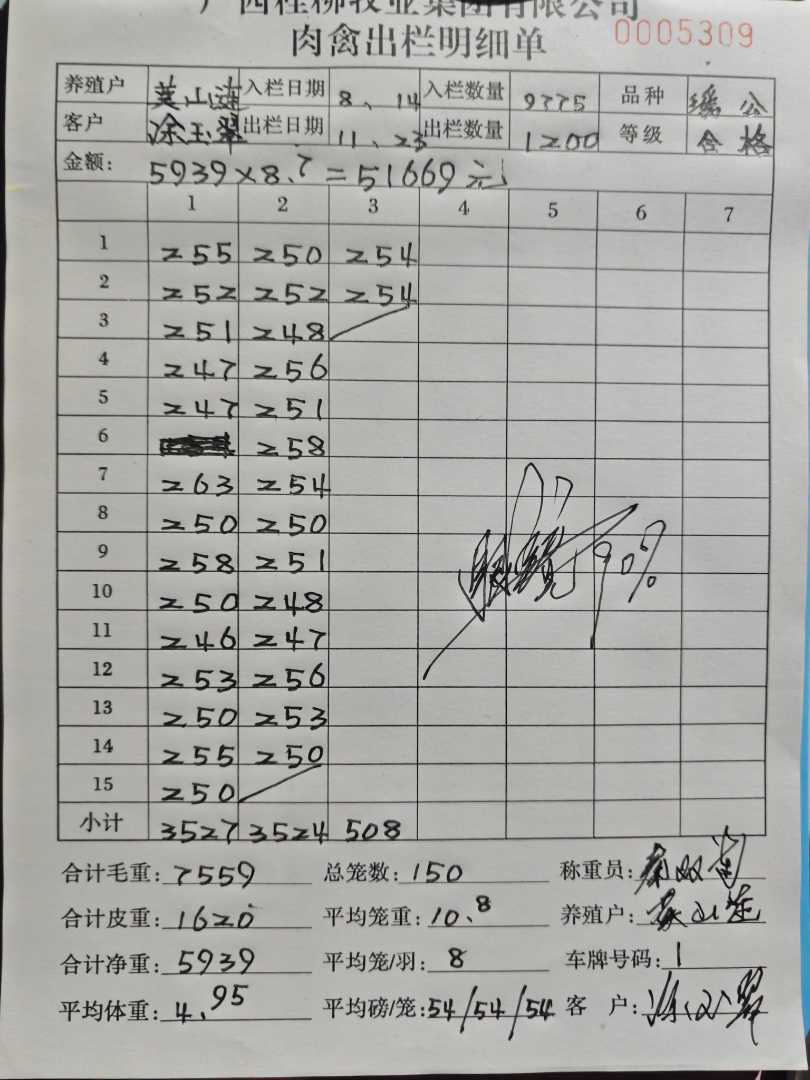 广西桂柳牧业集团有限公司
肉禽出栏明细单 0005309
养殖户 入栏日期 8、14 入栏数量 9775 品种 瑶公
客户 涂玉翠 出栏日期 11、23 出栏数量 1200 等级 合格
金额: 5939×8.7=51669元
1 2 3 4 5 6 7
1 255 250 254
2 252 252 254
3 251 248
4 247 256
5 247 251
6 258
7 263 254
8 250 250
9 258 251
10 250 248
11 246 247
12 253 256
13 250 253
14 255 250
15 250
小计 3527 3524 508
90%
合计毛重: 7559 总笼数: 150 称重员:
合计皮重: 1620 平均笼重: 10.8 养殖户:
合计净重: 5939 平均笼/羽: 8 车牌号码: 1
平均体重: 4.95 平均磅/笼: 54/54/54 客 户: